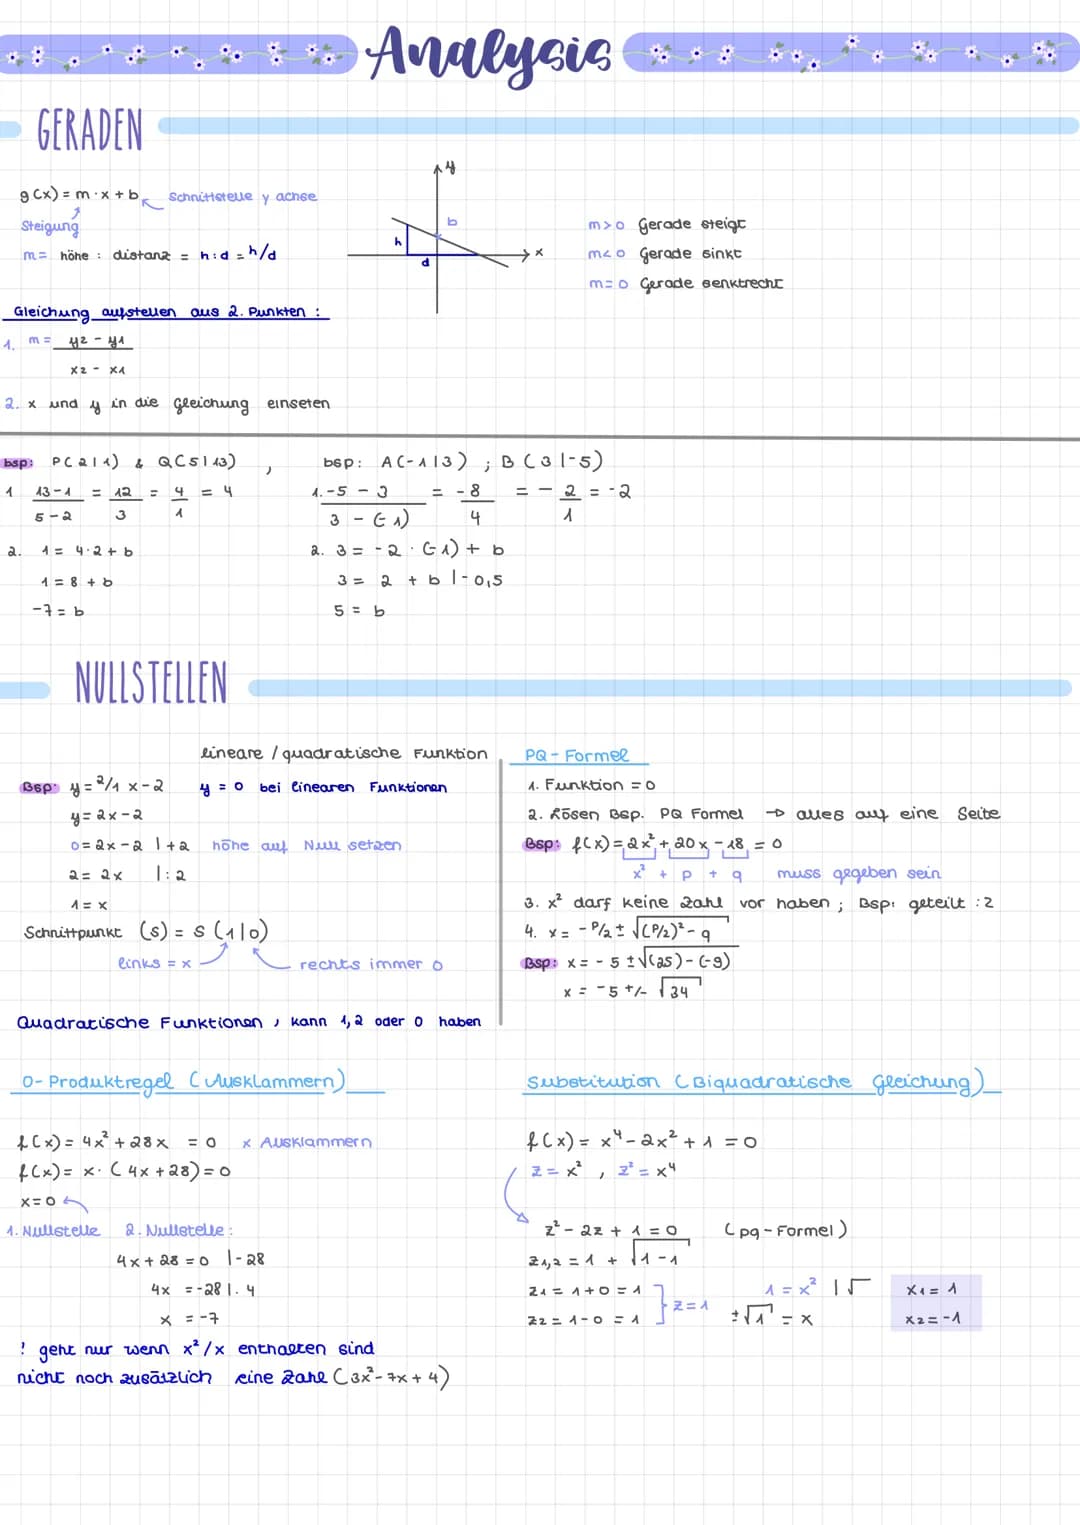 Analysis
GERADEN
g(x) = m · x + b Schnittstelle y achse
Steigung
m = höhe : distanz = h:d = h/d
y
b
h
d
x
m>0 Gerade steigt
m<0 Gerade sinkt
m=0 Gerade senktrecht
Gleichung aufstellen aus 2. Punkten :
1. m = y2 - y1
x2 - x1
2. x und y in die Gleichung einseten
bsp: P(2|1) & Q(5|13) ,
1 13-1 = 12 = 4 = 4
5-2 3 1
2. 1 = 4·2 + b
1 = 8 + b
-7 = b
bsp: A(-1|3) ; B(3|-5)
1. -5 - 3 = -8 = - 2 = -2
3 - (-1) 4 1
2. 3 = -2 · (-1) + b
3 = 2 + b |-0,5
5 = b
NULLSTELLEN
lineare / quadratische Funktion
Bsp: y = 2/1 x - 2 y = 0 bei linearen Funktionen
y = 2x - 2
0 = 2x - 2 |+2 höhe auf Null setzen
2 = 2x |:2
1 = x
Schnittpunkt (s) = s (1|0)
links = x rechts immer 0
Quadratische Funktionen , kann 1,2 oder 0 haben
PQ - Formel
1. Funktion = 0
2. Lösen Bsp. PQ Formel → alles auf eine Seite
Bsp: f(x) = 2x² + 20x - 18 = 0
x² + p + q muss gegeben sein
3. x² darf keine Zahl vor haben ; Bsp: geteilt :2
4. x = - P/2 ± √(P/2)² - q
Bsp: x = - 5 ± √(25) - (-9)
x = -5 +/- √34
0- Produktregel (Ausklammern)
f(x) = 4x² + 28x = 0 x Ausklammern
f(x) = x · (4x + 28) = 0
x = 0
1. Nullstelle 2. Nullstelle :
4x + 28 = 0 |-28
4x = -28 |. 4
x = -7
! geht nur wenn x²/x enthalten sind
nicht noch zusätzlich eine Zahl (3x² - 7x + 4)
Substitution (Biquadratische Gleichung)
f(x) = x⁴ - 2x² + 1 = 0
z = x² , z² = x⁴
z² - 2z + 1 = 0 (pq - Formel)
z1,2 = 1 + √1 - 1
z1 = 1 + 0 = 1
z2 = 1 - 0 = 1
z = 1
1 = x² |√
±√1 = x
x1 = 1
x2 = -1